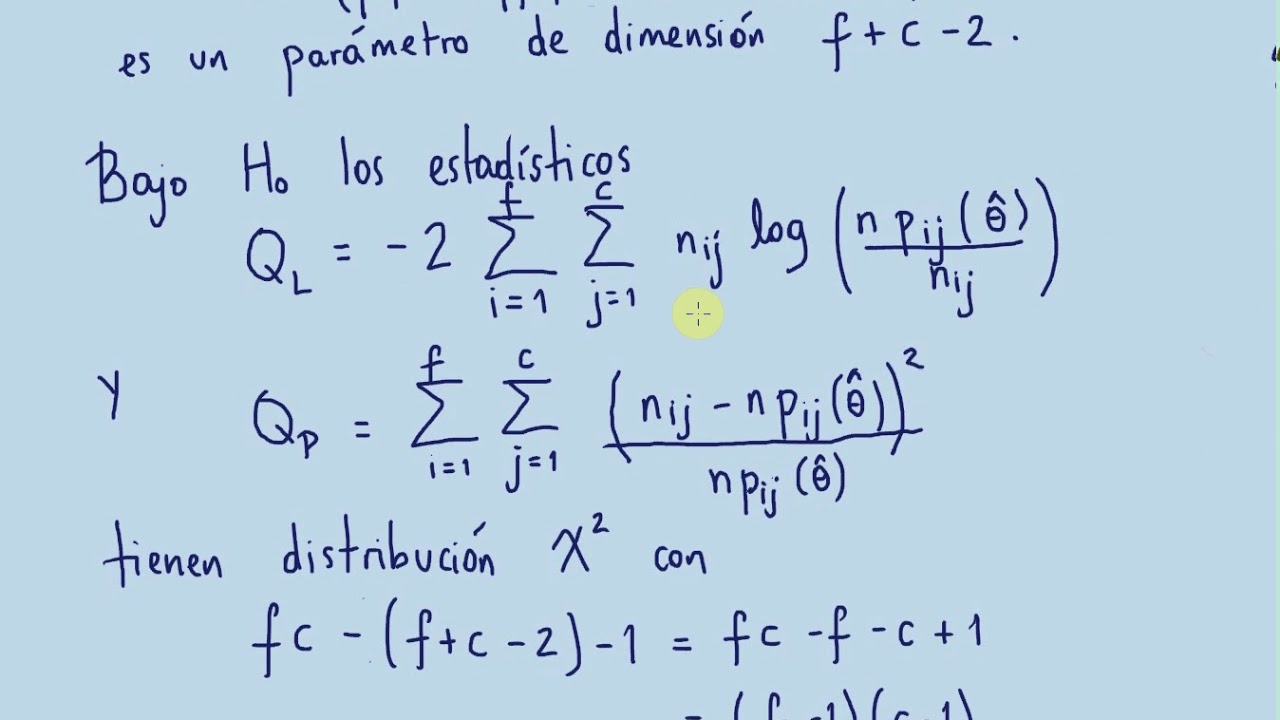 es un parámetro de dimensión f + c - 2 .
Bajo H₀ los estadísticos
Q_L = -2 ∑_{i=1}^{f} ∑_{j=1}^{c} n_{ij} log ( n p_{ij}(θ̂) / n_{ij} )
y Q_P = ∑_{i=1}^{f} ∑_{j=1}^{c} ( n_{ij} - n p_{ij}(θ̂) )² / n p_{ij}(θ̂)
tienen distribución χ² con
fc - (f+c-2) - 1 = fc - f - c + 1
= (f-1)(c-1)